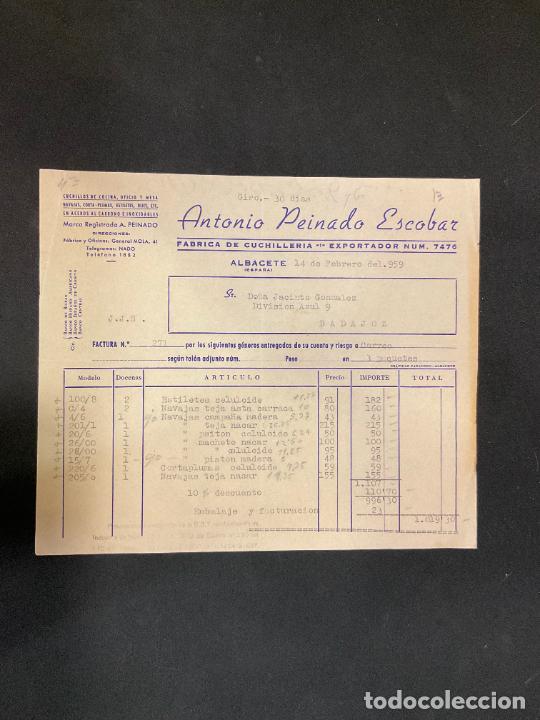 Giro,- 30 dias
CUCHILLOS DE COCINA, OFICIO Y MESA
NAVAJAS, CORTA-PLUMAS, ESTILETES, DAGAS, ETC.
EN ACEROS AL CARBONO E INOXIDABLES
Marca Registrada A. PEINADO
DIRECCIONES:
Fábrica y Oficinas: General MOLA, 41
Telegramas: NADO
Teléfono 1882
Antonio Peinado Escobar
FABRICA DE CUCHILLERIA EXPORTADOR NUM. 7476
ALBACETE 14 de Febrero del.959
(ESPAÑA)
Sr. Doña Jacinto Gonzalez
Division Azul 9
BADAJOZ
J.J.S.
BANCO DE BILBAO
BANCO HISPANO AMERICANO
BANCO ESPAÑOL DE CREDITO
BANCO CENTRAL
FACTURA N.º 271 por los siguientes géneros entregados de su cuenta y riesgo a Correo
según talón adjunto núm. Peso en 1 paquetes
Modelo Docenas ARTICULO Precio IMPORTE TOTAL
100/8 2 Estiletes celuloide 91 182
C/4 2 Navajas teja asta carraca 80 160
4/6 1 Navajas campaña madera 43 43
201/1 1 " teja nacar 215 215
20/6 1 " peiton celuloide 65 65
26/00 1 " machete nacar 100 100
28/00 1 " " celuloide 95 95
15/7 1 " piston madera 48 48
220/6 1 Cortaplumas celuloide 59 59
205/0 1 Navajas teja nacar 155 155
1.107
10 % descuento 110 70
996 30
Embalaje y facturacion 23
1.019 30
todocoleccion.net